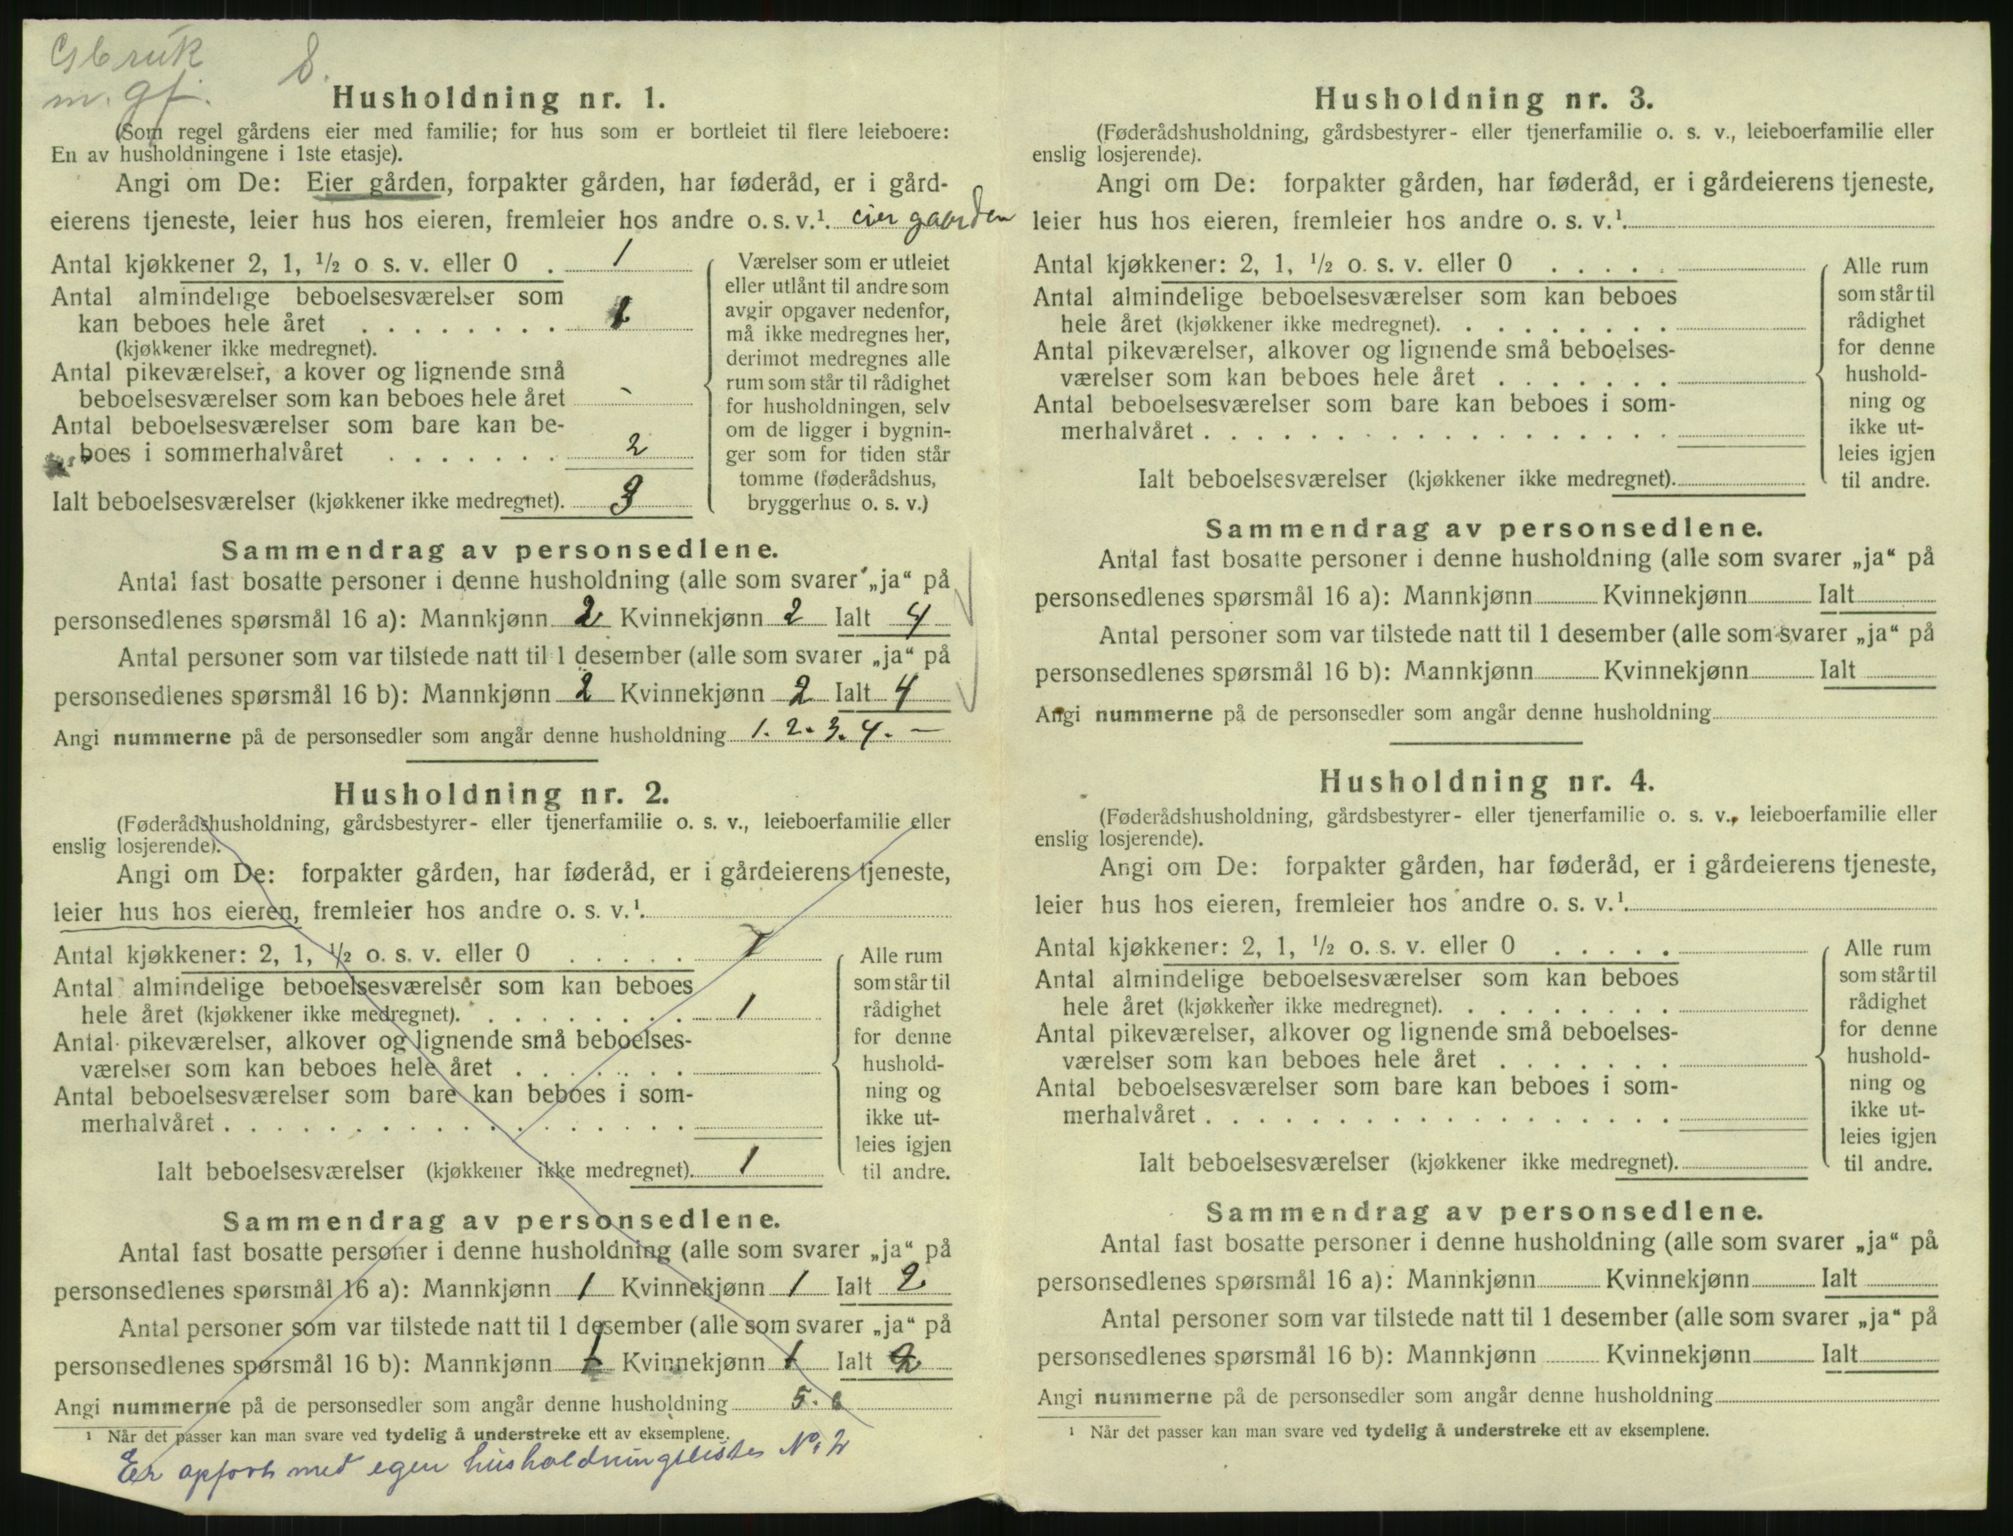 Gbruk
m. gf.
8.
Husholdning nr. 1.
(Som regel gårdens eier med familie; for hus som er bortleiet til flere leieboere:
En av husholdningene i 1ste etasje).
Angi om De: Eier gården, forpakter gården, har føderåd, er i gård-
eierens tjeneste, leier hus hos eieren, fremleier hos andre o. s. v.¹. eier gaarden
Antal kjøkkener 2, 1, ½ o s. v. eller 0 . 1
Antal almindelige beboelsesværelser som
kan beboes hele året . . . . . . . . . 1
(kjøkkener ikke medregnet).
Antal pikeværelser, a kover og lignende små
beboelsesværelser som kan beboes hele året -
Antal beboelsesværelser som bare kan be-
boes i sommerhalvåret . . . . . . . 2
Ialt beboelsesværelser (kjøkkener ikke medregnet). 3
Værelser som er utleiet
eller utlånt til andre som
avgir opgaver nedenfor,
må ikke medregnes her,
derimot medregnes alle
rum som står til rådighet
for husholdningen, selv
om de ligger i bygnin-
ger som for tiden står
tomme (føderådshus,
bryggerhus o. s. v.)
Sammendrag av personsedlene.
Antal fast bosatte personer i denne husholdning (alle som svarer „ja“ på
personsedlenes spørsmål 16 a): Mannkjønn 2 Kvinnekjønn 2 Ialt 4
Antal personer som var tilstede natt til 1 desember (alle som svarer „ja“ på
personsedlenes spørsmål 16 b): Mannkjønn 2 Kvinnekjønn 2 Ialt 4
Angi nummerne på de personsedler som angår denne husholdning 1. 2. 3. 4. —
Husholdning nr. 2.
(Føderådshusholdning, gårdsbestyrer- eller tjenerfamilie o. s. v., leieboerfamilie eller
enslig losjerende).
Angi om De: forpakter gården, har føderåd, er i gårdeierens tjeneste,
leier hus hos eieren, fremleier hos andre o. s. v.¹.
Antal kjøkkener: 2, 1, ½ o. s. v. eller 0 . . . . . 1
Antal almindelige beboelsesværelser som kan beboes
hele året (kjøkkener ikke medregnet). . . . . . . . . 1
Antal pikeværelser, alkover og lignende små beboelses-
værelser som kan beboes hele året . . . . . . .
Antal beboelsesværelser som bare kan beboes i som-
merhalvåret . . . . . . . . . . . . . . . . . .
Ialt beboelsesværelser (kjøkkener ikke medregnet). 1
Alle rum
som står til
rådighet
for denne
hushold-
ning og
ikke ut-
leies igjen
til andre.
Sammendrag av personsedlene.
Antal fast bosatte personer i denne husholdning (alle som svarer „ja“ på
personsedlenes spørsmål 16 a): Mannkjønn 1 Kvinnekjønn 1 Ialt 2
Antal personer som var tilstede natt til 1 desember (alle som svarer „ja“ på
personsedlenes spørsmål 16 b): Mannkjønn 1 Kvinnekjønn 1 Ialt 2
Angi nummerne på de personsedler som angår denne husholdning 5. 6
¹ Når det passer kan man svare ved tydelig å understreke ett av eksemplene.
Er opført med egen husholdningsliste No. 2
Husholdning nr. 3.
(Føderådshusholdning, gårdsbestyrer- eller tjenerfamilie o. s. v., leieboerfamilie eller
enslig losjerende).
Angi om De: forpakter gården, har føderåd, er i gårdeierens tjeneste,
leier hus hos eieren, fremleier hos andre o. s. v.¹.
Antal kjøkkener: 2, 1, ½ o. s. v. eller 0 . . . . .
Antal almindelige beboelsesværelser som kan beboes
hele året (kjøkkener ikke medregnet). . . . . . . . .
Antal pikeværelser, alkover og lignende små beboelses-
værelser som kan beboes hele året . . . . . . .
Antal beboelsesværelser som bare kan beboes i som-
merhalvåret . . . . . . . . . . . . . . . . . .
Ialt beboelsesværelser (kjøkkener ikke medregnet).
Alle rum
som står til
rådighet
for denne
hushold-
ning og
ikke ut-
leies igjen
til andre.
Sammendrag av personsedlene.
Antal fast bosatte personer i denne husholdning (alle som svarer „ja“ på
personsedlenes spørsmål 16 a): Mannkjønn Kvinnekjønn Ialt
Antal personer som var tilstede natt til 1 desember (alle som svarer „ja“ på
personsedlenes spørsmål 16 b): Mannkjønn Kvinnekjønn Ialt
Angi nummerne på de personsedler som angår denne husholdning
Husholdning nr. 4.
(Føderådshusholdning, gårdsbestyrer- eller tjenerfamilie o. s. v., leieboerfamilie eller
enslig losjerende).
Angi om De: forpakter gården, har føderåd, er i gårdeierens tjeneste,
leier hus hos eieren, fremleier hos andre o. s. v.¹.
Antal kjøkkener: 2, 1, ½ o. s. v. eller 0 . . . . .
Antal almindelige beboelsesværelser som kan beboes
hele året (kjøkkener ikke medregnet). . . . . . . . .
Antal pikeværelser, alkover og lignende små beboelses-
værelser som kan beboes hele året . . . . . . .
Antal beboelsesværelser som bare kan beboes i som-
merhalvåret . . . . . . . . . . . . . . . . . .
Ialt beboelsesværelser (kjøkkener ikke medregnet).
Alle rum
som står til
rådighet
for denne
hushold-
ning og
ikke ut-
leies igjen
til andre.
Sammendrag av personsedlene.
Antal fast bosatte personer i denne husholdning (alle som svarer „ja“ på
personsedlenes spørsmål 16 a): Mannkjønn Kvinnekjønn Ialt
Antal personer som var tilstede natt til 1 desember (alle som svarer „ja“ på
personsedlenes spørsmål 16 b): Mannkjønn Kvinnekjønn Ialt
Angi nummerne på de personsedler som angår denne husholdning
¹ Når det passer kan man svare ved tydelig å understreke ett av eksemplene.